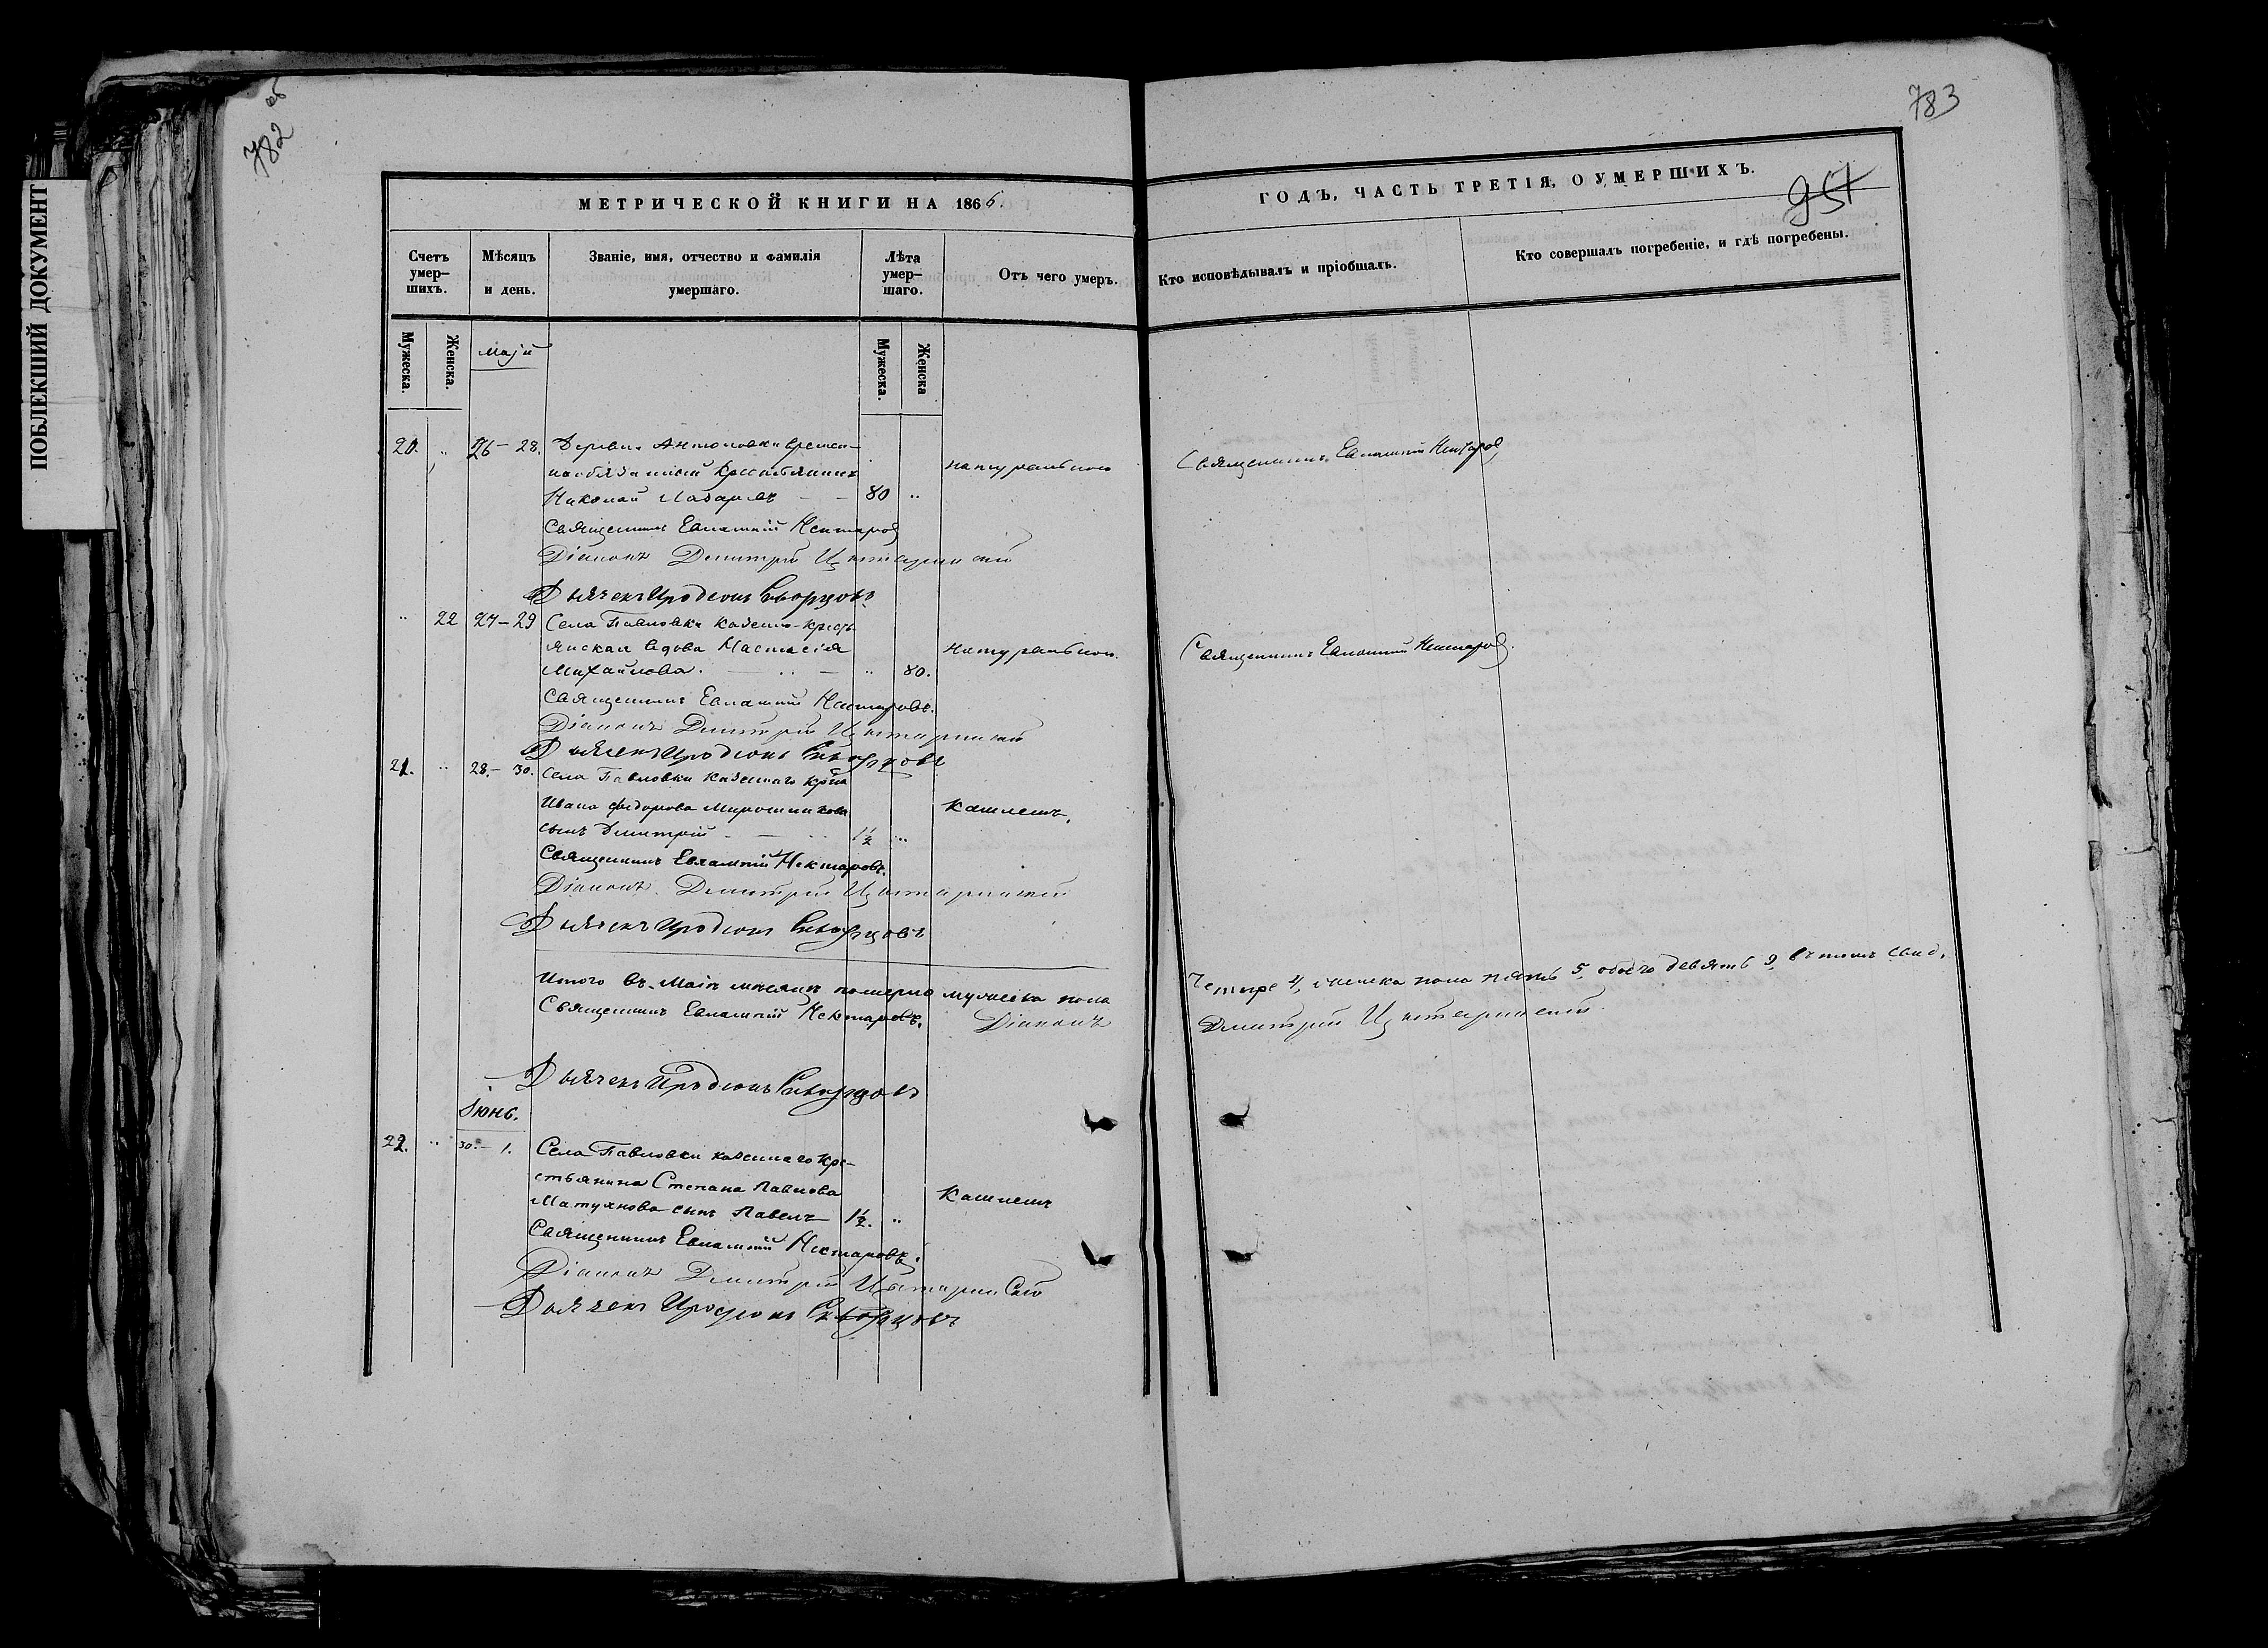 ПОБЛЕКШИЙ ДОКУМЕНТ
782 об
783
МЕТРИЧЕСКОЙ КНИГИ НА 1866.
ГОДЪ, ЧАСТЬ ТРЕТІЯ, О УМЕРШИХЪ.
951
Счетъ умер-шихъ.
Мѣсяцъ и день.
Званіе, имя, отчество и фамилія умершаго.
Лѣта умер-шаго.
Отъ чего умеръ.
Кто исповѣдывалъ и пріобщалъ.
Кто совершалъ погребеніе, и гдѣ погребены.
Мужеска.
Женска.
Маій
Мужеска.
Женска
20. " 26 – 28. Деревни Антоновки времен-
нообязанный крестьянинъ натурально Священникъ Евлампій Нектаров
Николай Лазаревъ 80 "
Священникъ Евлампій Нектаров
Діаконъ Дмитрій
Дьячекъ Иродіонъ Скворцовъ
" 22 27 – 29 Села Павловки казенно-кресть
янская вдова Настасія натурально. Священникъ Евлампій Нектаров.
Михайлова. " 80.
Священникъ Евлампій Нектаровъ.
Діаконъ Дмитрій
Дьячекъ Иродіонъ Скворцовъ
21. " 28. – 30. Села Павловки казеннаго кр-на
Ивана Федорова Мирошникова Кашлемъ.
сынъ Дмитрій 1½ "
Священникъ Евлампій Нектаровъ.
Діаконъ Дмитрій
Дьячекъ Иродіонъ Скворцовъ
Итого въ Маіѣ мѣсяцѣ померло мужеска пола четыре 4, женска пола пять 5, обоего девять 9, въ томъ свид.
Священникъ Евлампій Нектаровъ. Діаконъ Дмитрій
Дьячекъ Иродіонъ Скворцов
Іюнь.
22. " 30. – 1. Села Павловки казеннаго кре-
стьянина Степана Павлова Кашлемъ
Матухнова сынъ Павелъ 1½. "
Священникъ Евлампій Нектаровъ.
Діаконъ Дмитрій
Дьячекъ Иродіонъ Скворцовъ